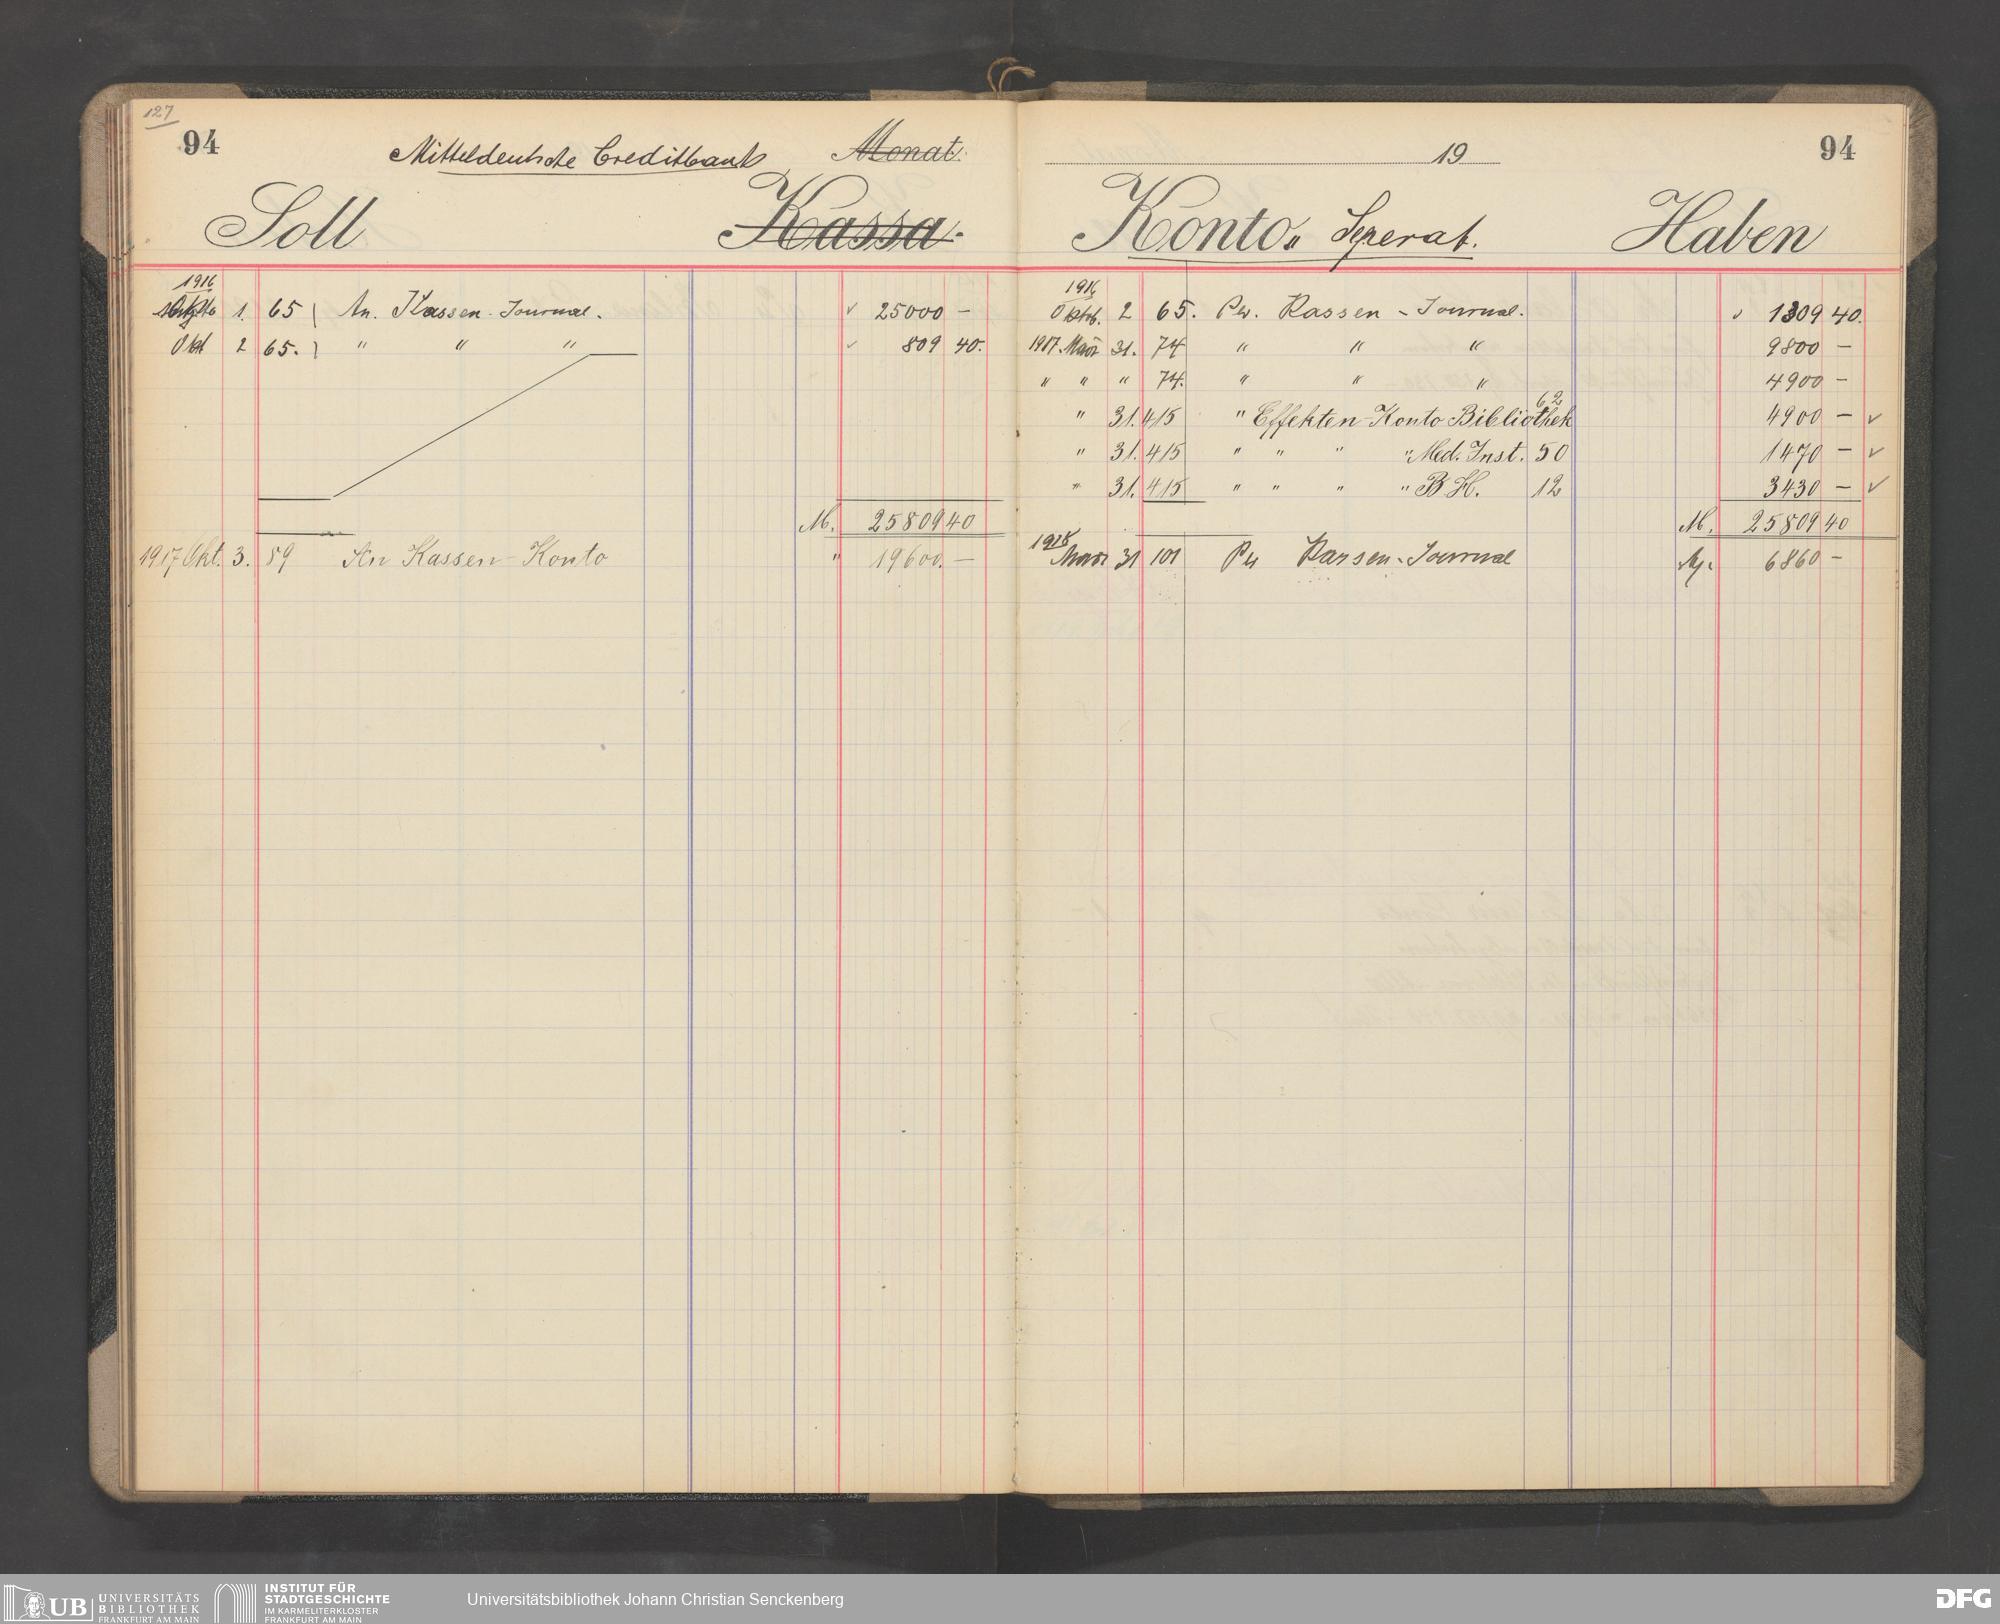 127
94
Mitteldeutsche Creditbank Monat
Soll Kassa
1916
1. 65 An. Kassen-Journal. ✓ 25000 —
Okt 2 65. " " " ✓ 809 40.
M. 25809 40
1917 Okt. 3. 89 An Kassen-Konto " 19600. —
19
94
Konto „ Seperat. Haben
1916
Oktob. 2 65. Per. Kassen-Journal. ✓ 1309 40.
1917. März 31. 74 " " " 9800 —
" " " 74. " " " 4900 —
" 31. 415 " Effekten-Konto Bibliothek 62 4900 — ✓
" 31. 415 " " " " Med. Inst. 50 1470 — ✓
" 31. 415 " " " " B H. 12 3430 — ✓
M. 25809 40
1918
März 31 101 Per Kassen-Journal M. 6860 —
UB UNIVERSITÄTS
BIBLIOTHEK
FRANKFURT AM MAIN
INSTITUT FÜR
STADTGESCHICHTE
IM KARMELITERKLOSTER
FRANKFURT AM MAIN
Universitätsbibliothek Johann Christian Senckenberg
DFG